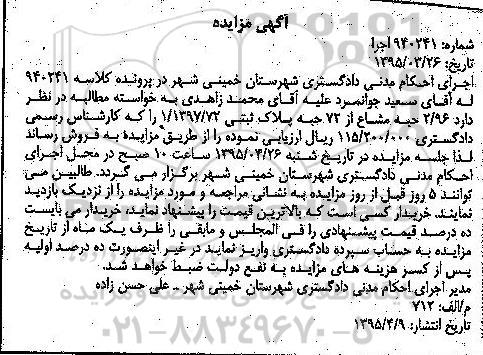 آگهی مزایده
شماره: ۹۴۰۲۴۱ اجرا
تاریخ: ۱۳۹۵/۰۳/۲۶
اجرای احکام مدنی دادگستری شهرستان خمینی شهر در پرونده کلاسه ۹۴۰۲۴۱
له آقای سعید جوانمرد علیه آقای محمد زاهدی به خواسته مطالبه در نظر
دارد ۲/۹۶ حبه مشاع از ۷۲ حبه پلاک ثبتی ۱/۱۳۹۷/۷۲ را که کارشناس رسمی
دادگستری ۱۱۵/۲۰۰/۰۰۰ ریال ارزیابی نموده را از طریق مزایده به فروش رساند
لذا جلسه مزایده در تاریخ شنبه ۱۳۹۵/۰۴/۲۶ ساعت ۱۰ صبح در محل اجرای
احکام مدنی دادگستری شهرستان خمینی شهر برگزار می گردد. طالبین می
توانند ۵ روز قبل از روز مزایده به نشانی مراجعه و مورد مزایده را از نزدیک بازدید
نمایند. خریدار کسی است که بالاترین قیمت را پیشنهاد نماید، خریدار می بایست
ده درصد قیمت پیشنهادی را فی المجلس و مابقی را ظرف یک ماه از تاریخ
مزایده به حساب سپرده دادگستری واریز نماید در غیر اینصورت ده درصد اولیه
پس از کسر هزینه های مزایده به نفع دولت ضبط خواهد شد.
مدیر اجرای احکام مدنی دادگستری شهرستان خمینی شهر - علی حسن زاده
م/الف: ۷۱۲
تاریخ انتشار: ۱۳۹۵/۴/۹
۰۲۱-۸۸۳۴۹۶۷۰-۵